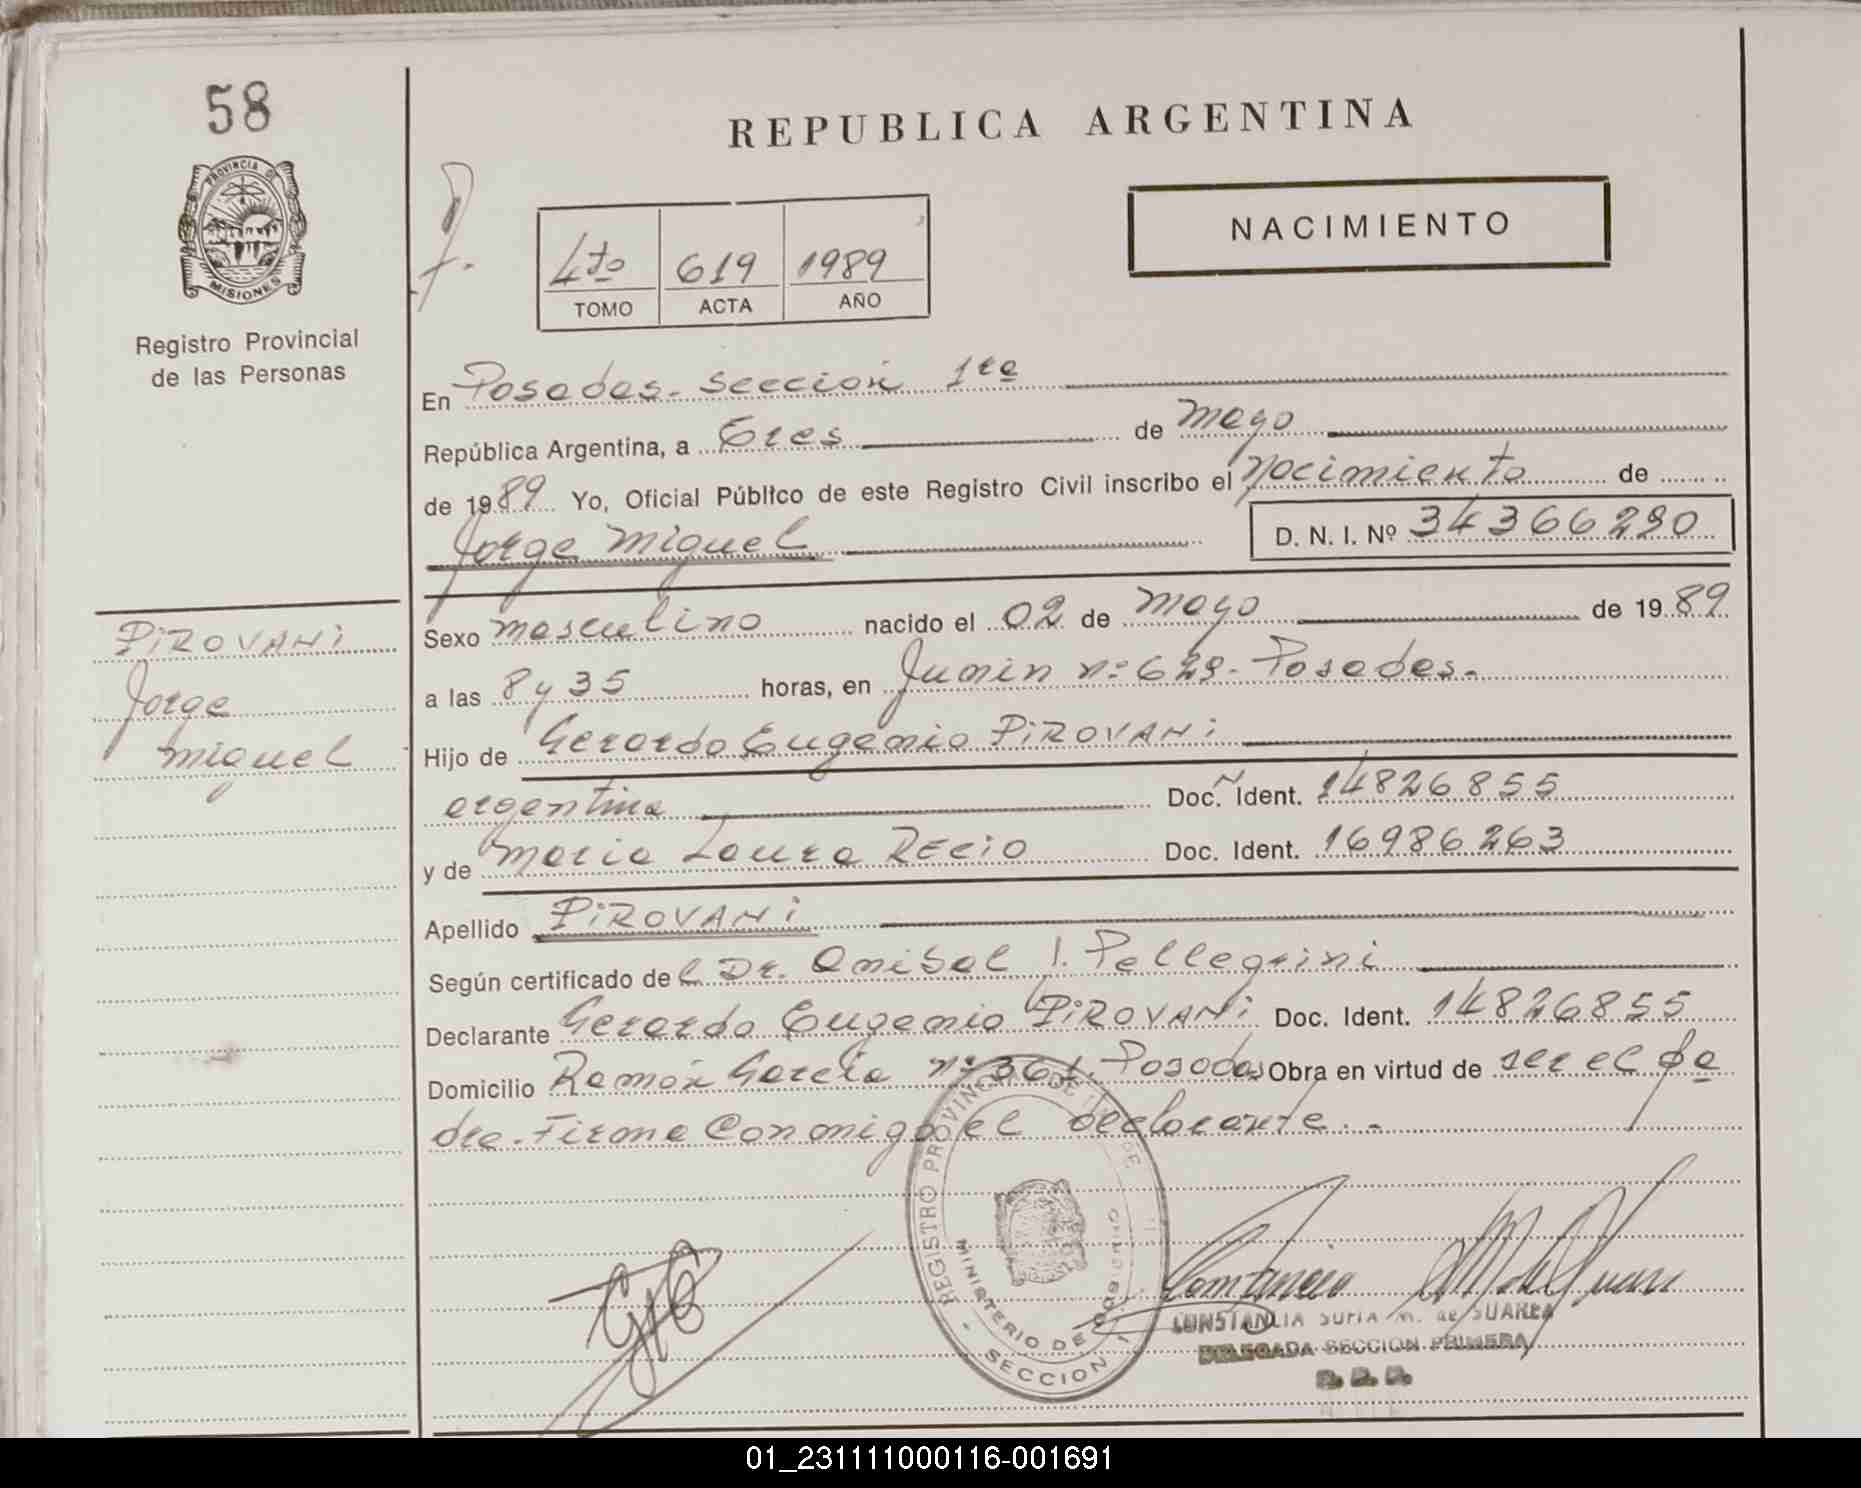 58
PROVINCIA DE
MISIONES
Registro Provincial
de las Personas
REPUBLICA ARGENTINA
NACIMIENTO
4to 619 1989
TOMO ACTA AÑO
En Posadas. Sección 1ra
República Argentina, a Tres de Mayo
de 1989 Yo, Oficial Público de este Registro Civil inscribo el Nacimiento de
Jorge Miguel D. N. I. Nº 34366290
PIROVANI
Jorge
Miguel
Sexo masculino nacido el 02 de Mayo de 1989
a las 8 y 35 horas, en Junin nº 629. Posadas.
Hijo de Gerardo Eugenio PIROVANI
argentina Doc. Ident. 14826855
y de Maria Laura RECIO Doc. Ident. 16986263
Apellido PIROVANI
Según certificado del Dr. Anibal I. Pellegrini
Declarante Gerardo Eugenio PIROVANI Doc. Ident. 14826855
Domicilio Ramón Garcia nº 361. Posadas Obra en virtud de ser el pa
dre. Firma Conmigo el declarante.
REGISTRO PROVINCIAL DE
MINISTERIO DE GOBIERNO
SECCION 1
CONSTANCIA SOFIA M. de SUAREZ
DELEGADA SECCION PRIMERA
01_231111000116-001691